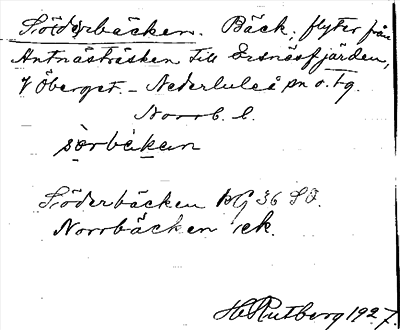 Söderbäcken. Bäck; flyter från
Antnästräsken till Ersnäsfjärden,
V Öberget. - Nederluleå sn o. tg.
Norrb. l.
sörbäkan
Söderbäcken GK 36 SO.
Norrbäcken ek.
H Rutberg 1927.